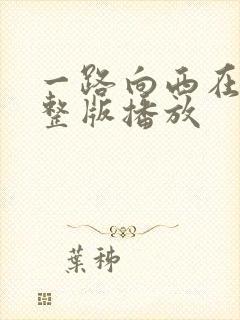 一路向西在
整版播放
葉秭